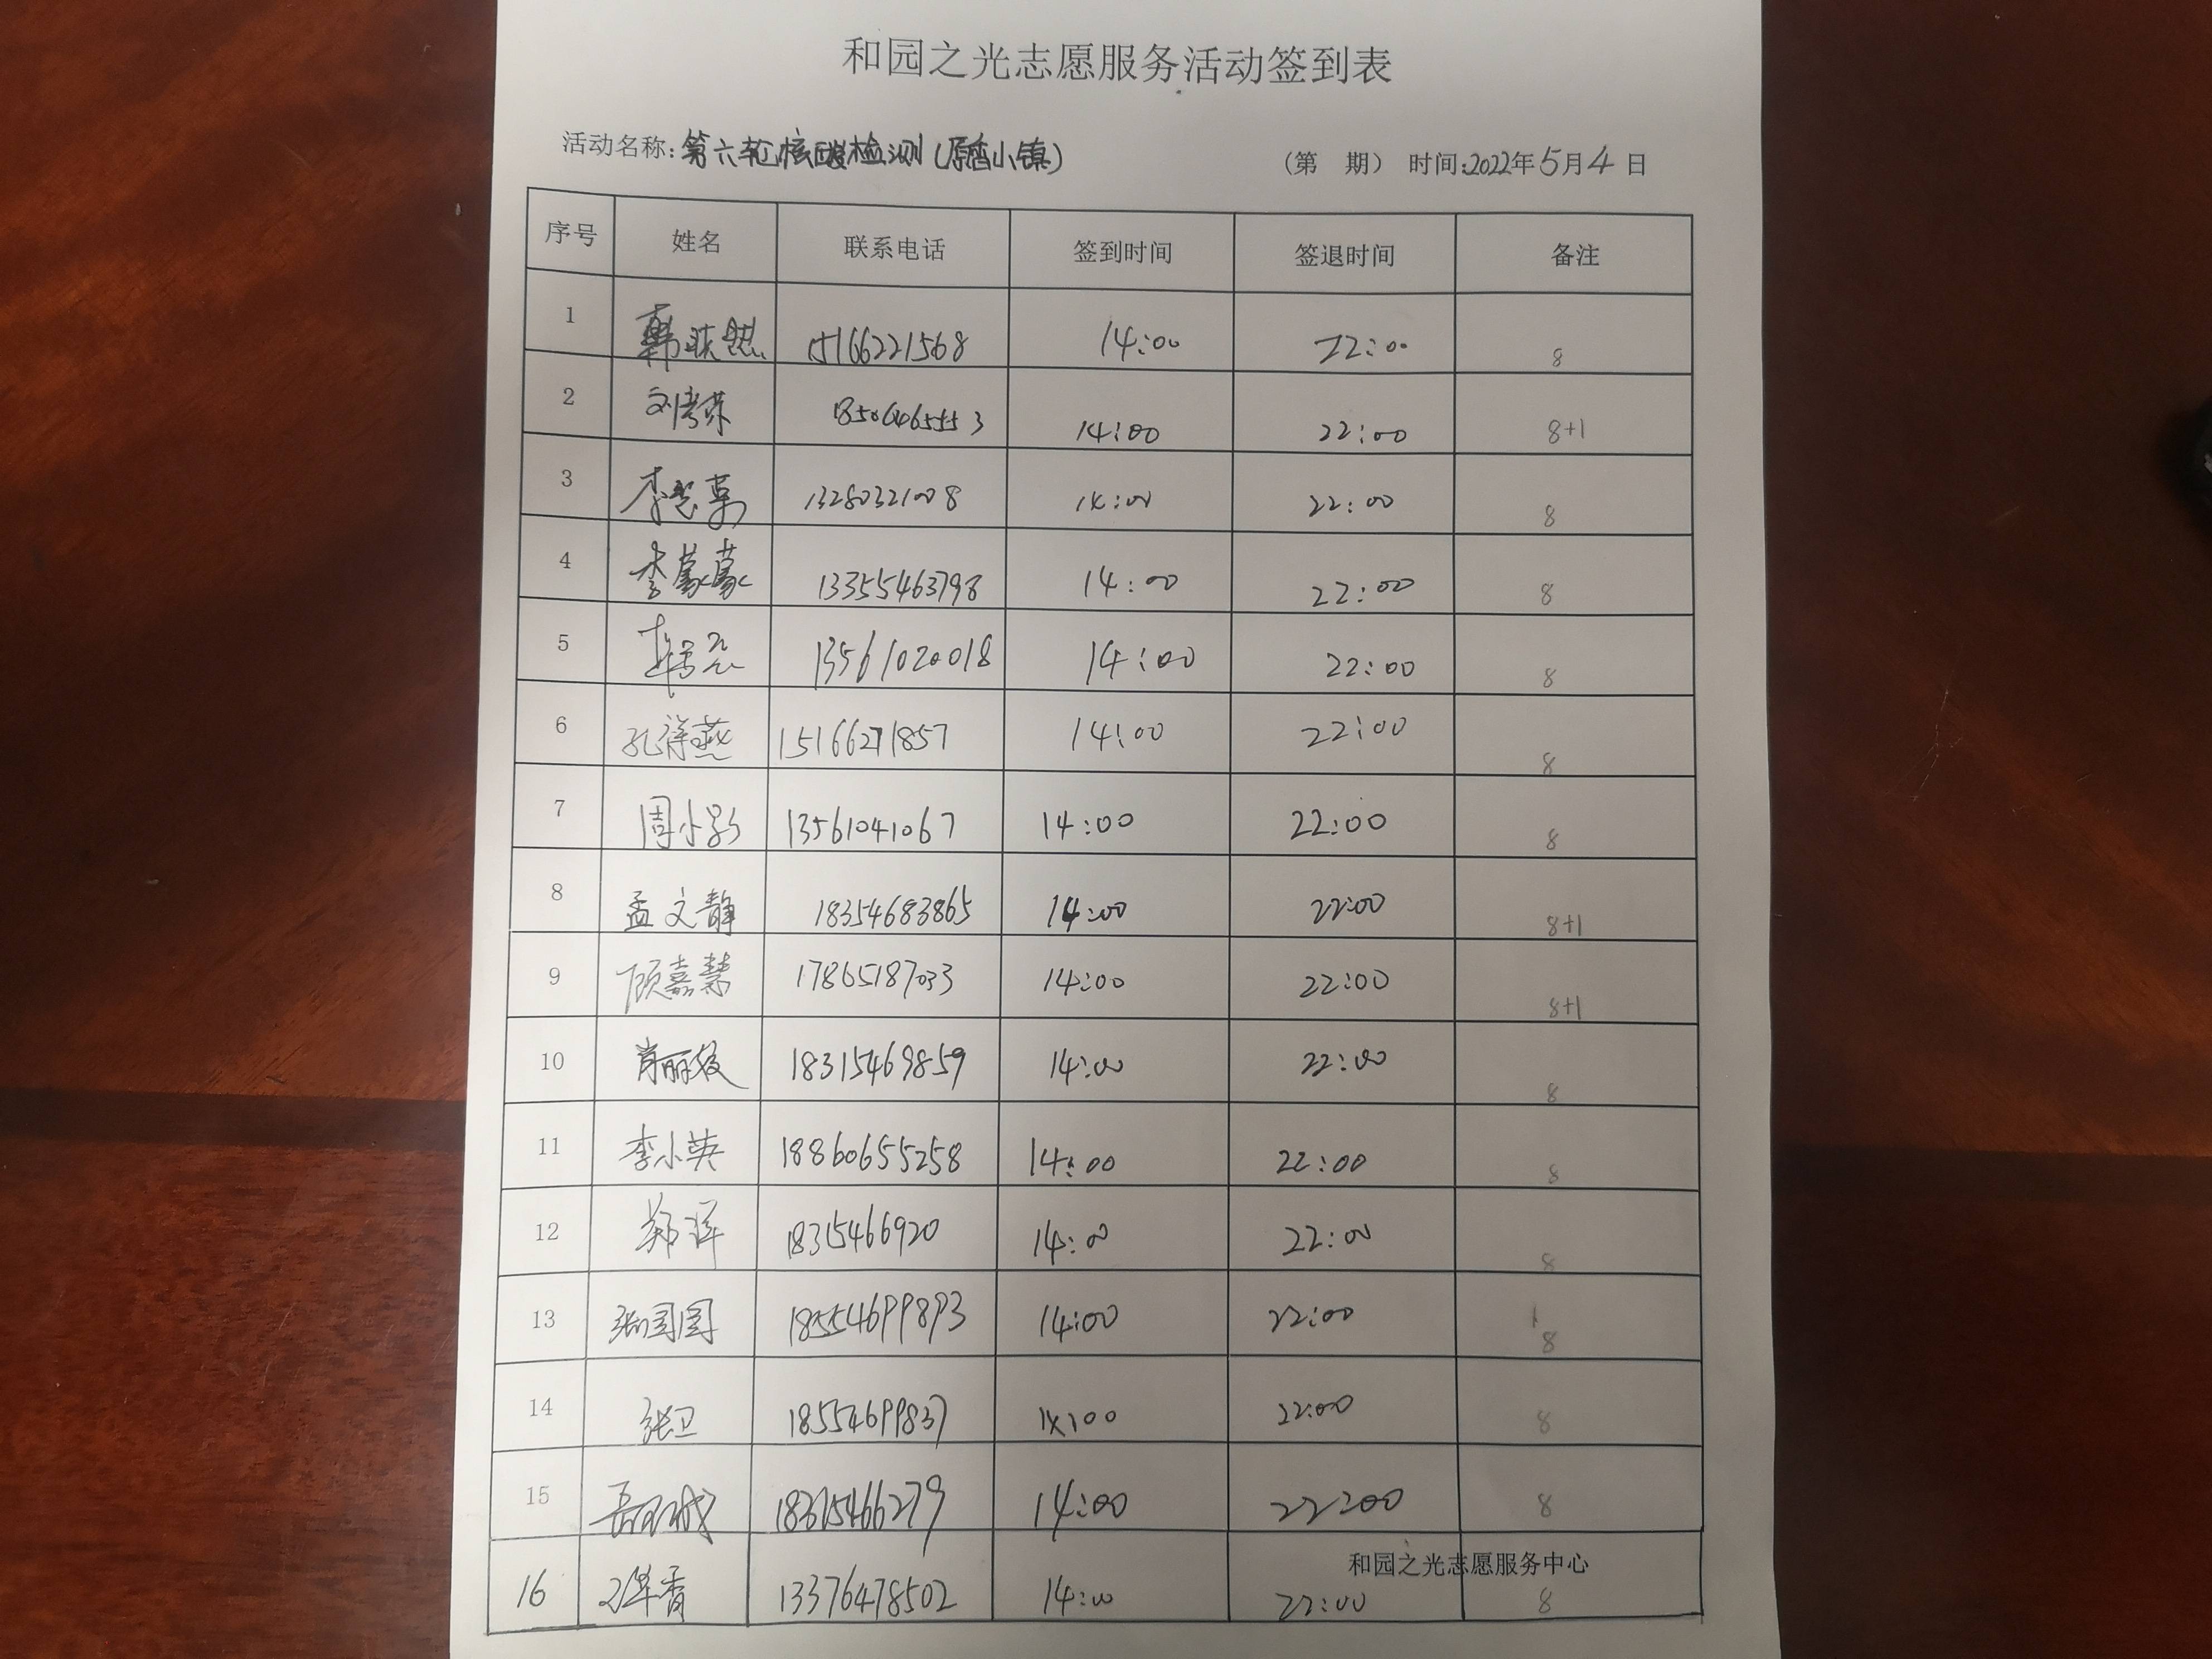 和园之光志愿服务活动签到表
活动名称:第六轮核酸检测(原香小镇) (第 期) 时间:2022年5月4日
序号 姓名 联系电话 签到时间 签退时间 备注
1 韩 15166221568 14:00 22:00 8
2 刘 14:00 22:00 8+1
3 李 13280321008 14:00 22:00 8
4 李蒙蒙 13355463798 14:00 22:00 8
5 13561020018 14:00 22:00 8
6 孔祥燕 15166271857 14:00 22:00 8
7 周小影 13561041067 14:00 22:00 8
8 孟文静 18354683865 14:00 22:00 8+1
9 顾嘉慧 17865187033 14:00 22:00 8+1
10 肖丽 18315469859 14:00 22:00 8
11 李小英 18860655258 14:00 22:00 8
12 郑 18315466920 14:00 22:00 8
13 张园园 18554699893 14:00 22:00 8
14 张卫 18554699837 14:00 22:00 8
15 14:00 22:00 8
和园之光志愿服务中心
16 13376478502 14:00 22:00 8